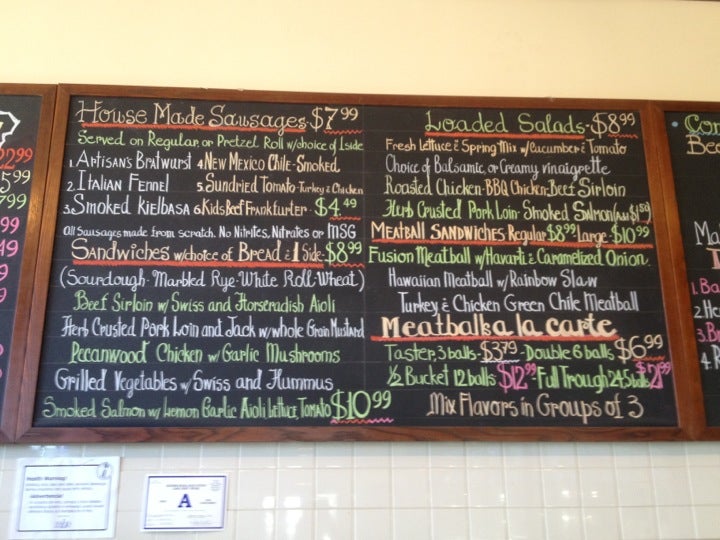 22.99
5.99
.99
.49
.99
.99
House Made Sausages $7.99
Served on Regular or Pretzel Roll w/choice of 1 side
1. Artisan's Bratwurst 4. New Mexico Chile-Smoked
2. Italian Fennel 5. Sundried Tomato-Turkey & Chicken
3. Smoked Kielbasa 6. Kids Beef Frankfurter - $4.49
All Sausages made from scratch. No Nitrites, Nitrates or MSG
Sandwiches w/choice of Bread & 1 Side - $8.99
(Sourdough-Marbled Rye-White Roll-Wheat)
Beef Sirloin w/Swiss and Horseradish Aioli
Herb Crusted Pork Loin and Jack w/whole Grain Mustard
Pecanwood Chicken w/Garlic Mushrooms
Grilled Vegetables w/Swiss and Hummus
Smoked Salmon w/Lemon Garlic Aioli Lettuce, Tomato $10.99
Loaded Salads - $8.99
Fresh Lettuce & Spring Mix w/Cucumber & Tomato
Choice of Balsamic, or Creamy vinaigrette
Roasted Chicken-BBQ Chicken-Beef Sirloin
Herb Crusted Pork Loin-Smoked Salmon (Add $1.50)
Meatball Sandwiches Regular $8.99 Large - $10.99
Fusion Meatball w/Havarti & Caramelized Onion
Hawaiian Meatball w/Rainbow Slaw
Turkey & Chicken Green Chile Meatball
Meatballs a la carte
Taster, 3 balls - $3.79 - Double 6 balls $6.99
½ Bucket 12 balls $12.99 - Full Trough 24-5 balls $21.99
Mix Flavors in Groups of 3
Con
Bee
Ma
1. Ba
2. He
3. Br
4. R
Health Warning!
¡Advertencia!
A